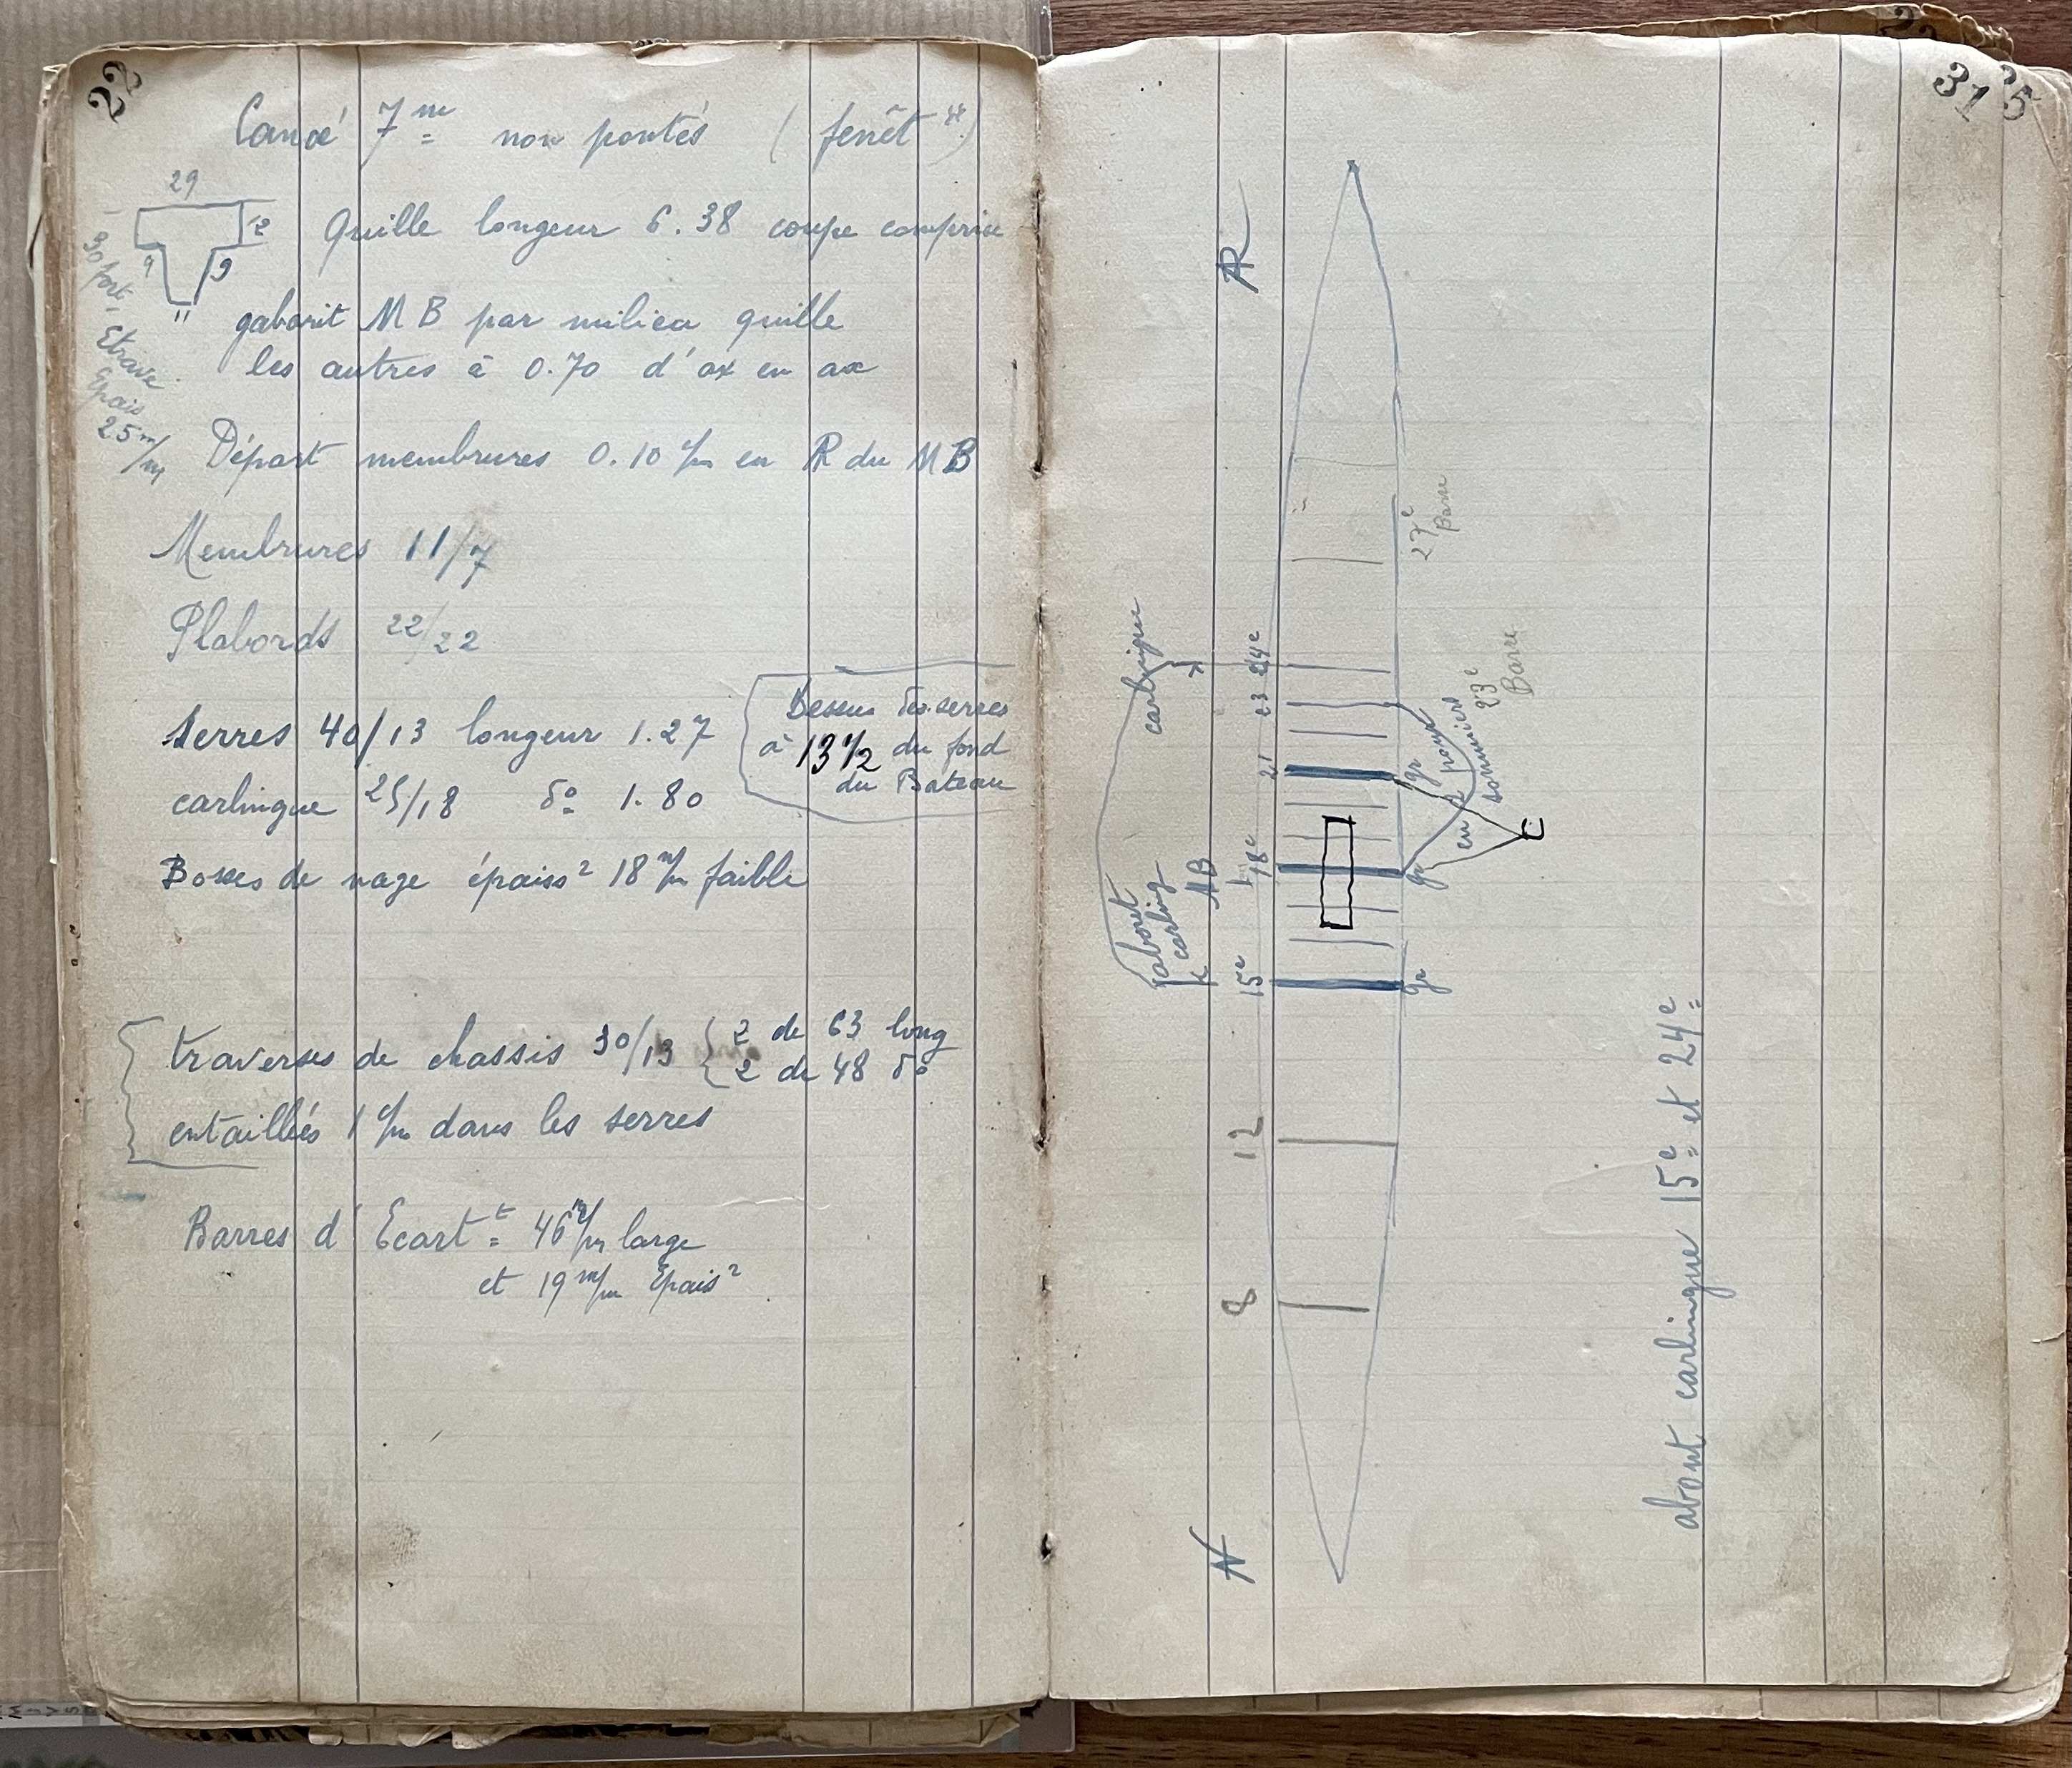 22
Canoé 7 m non pontés ( fenêt )
29
12
9 9
11
Quille longeur 6.38 coupe comprise
30 fort
Etrave
Epais
25 m/m
gabarit M B par milieu quille
les autres à 0.70 d'ax en ax
Départ membrures 0.10 c/m en AR du M B
Membrures 11/7
Plabords 22/22
Serres 40/13 longeur 1.27
Dessus des serres
à 13 1/2 du fond
du Bateau
carlingue 25/18 do 1.80
Bosses de nage épaiss r 18 m/m faible
traverses de chassis 30/13 { 2 de 63 long
2 de 48 do
entaillées 1 c/m dans les serres
Barres d'Ecart t 46 m/m large
et 19 m/m Epais r
31
25
AR
carlingue
24e
23
21
18e
MB
carling
15e
12
8
N
27e
Barre
23e
Barre
gr
en
pour
sommiers
gr
C
gr
about carlingue 15e et 24e